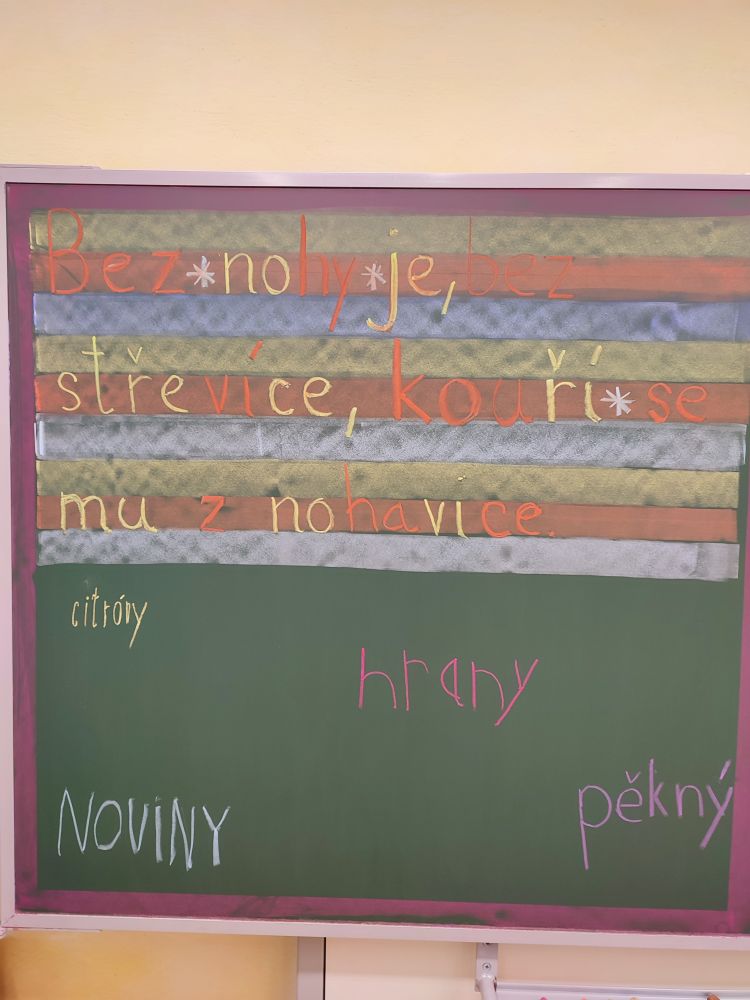 Bez*nohy*je, bez
střevíce, kouří*se
mu z nohavice.
citróny
hrany
NOVINY
pěkný